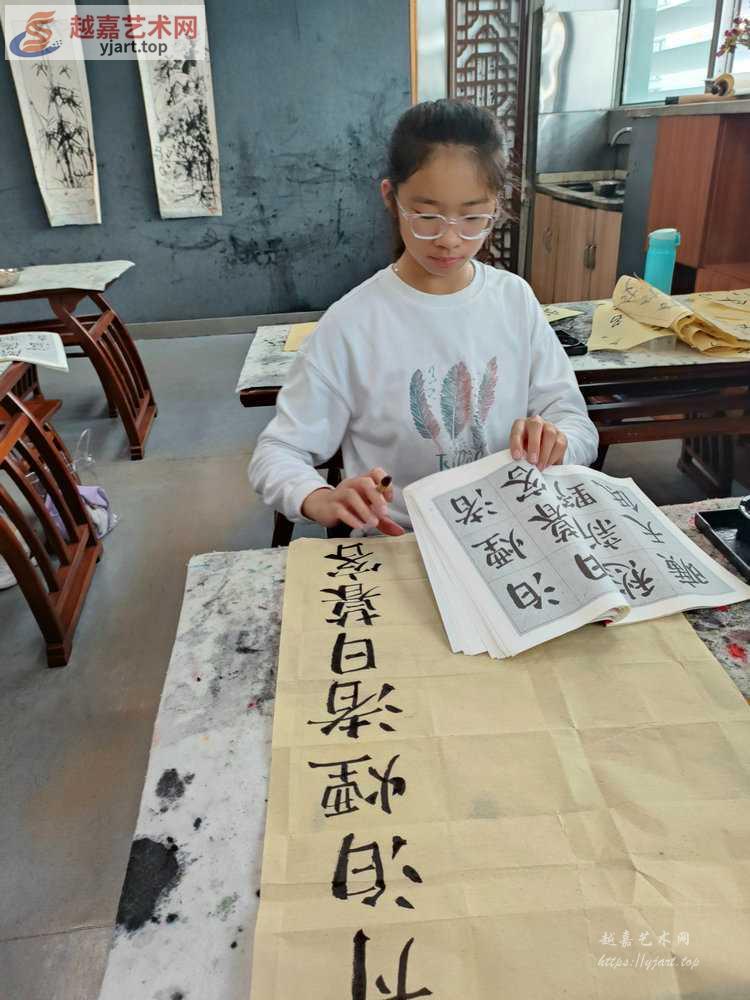 越嘉艺术网
yjart.top
泊煙渚日暮客
泊煙渚
日暮客
愁新野
曠天低
越嘉艺术网
https://yjart.top